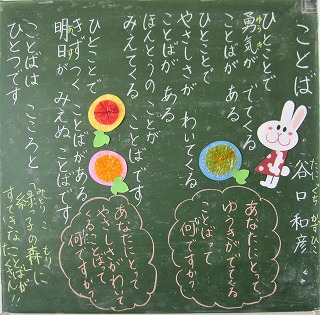 ことば
谷口和彦
たにぐち かずひこ
ひとことで
勇気が でてくる
ゆうき
ことばが ある
ひとことで
やさしさが わいてくる
ことばが ある
ほんとうの ことが
みえてくる ことばです
ひとことで
きずつく ことばがある
明日が みえぬ ことばです
ことばは こころと
ひとつです
あなたにとって
ゆうきがでてくる
ことばって
何ですか?
あなたにとって
やさしさがわいて
くることばって
何ですか?
緑っ子の森に
みどり こ もり
すてきな ことばが
たくさん!!